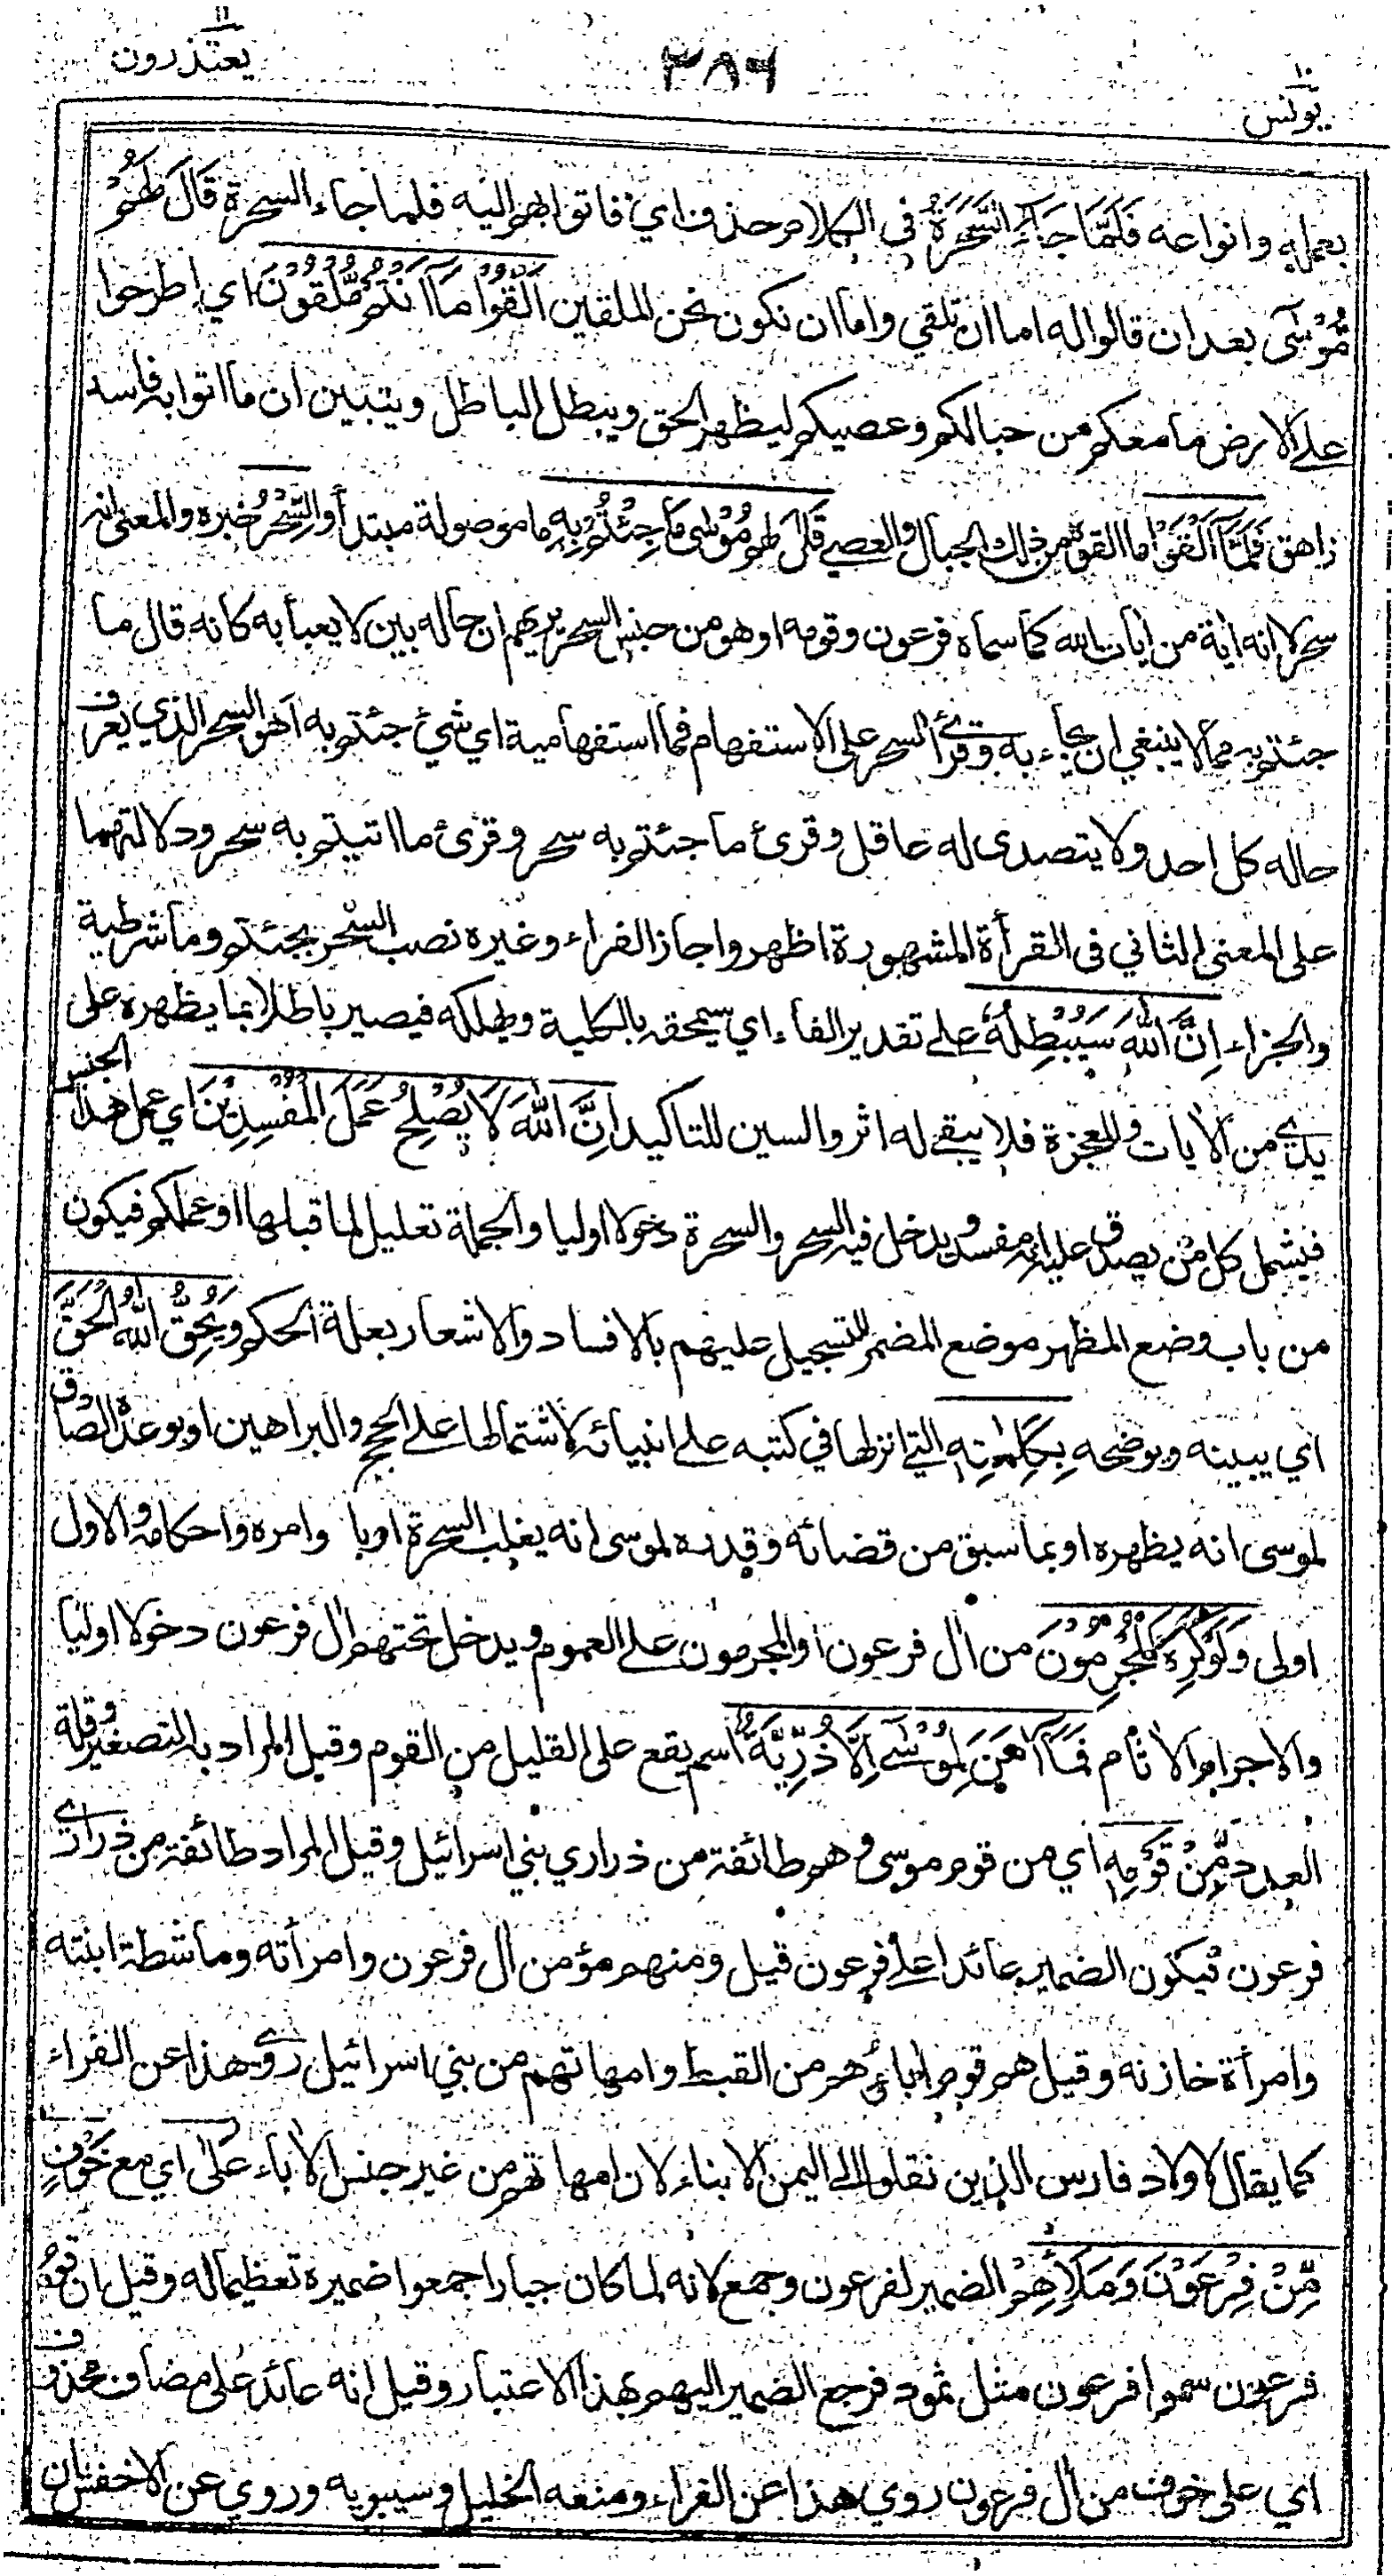 يعتذرون ١١
٣٨٦
١٠ يونس
بعمله وانواعه فَلَمَّا جَاءَ السَّحَرَةُ في الكلام حذف اي فاتوا بهم اليه فلما جاء السحرة قَالَ لَهُمْ
مُّوْسَى بعد ان قالوا له اما ان تلقي واما ان نكون نحن الملقين اَلْقُوْا مَا اَنْتُمْ مُّلْقُوْنَ اي اطرحوا
على الارض ما معكم من حبالكم وعصيكم ليظهر الحق ويبطل الباطل ويتبين ان ما اتوا به فاسد
زاهق فَلَمَّا اَلْقَوْا ما القوه من ذلك الحبال والعصي قَالَ لهم مُوْسٰى مَا جِئْتُمْ بِهِ ما موصولة مبتدأ والسِّحْرُ خبره والمعنى انه
سحر لا انه اية من ايات الله كما سماه فرعون وقومه او هو من جنس السحر يريهم ان حاله بين لا يعبأ به كانه قال ما
جئتم به مما لا ينبغي ان يجاء به وقرئ السحر على الاستفهام فما استفهامية اي شيء جئتم به اهو السحر الذي يعرف
حاله كل احد ولا يتصدى له عاقل وقرئ ما جئتم به سحر وقرئ ما اتيتم به سحر ودلالتهما
على المعنى الثاني في القرأة المشهورة اظهر واجاز الفراء وغيره نصب السحر بجئتم وما شرطية
والجزاء اِنَّ اللهَ سَيُبْطِلُهُ على تقدير الفاء اي سيمحقه بالكلية ويهلكه فيصير باطلا بما يظهره على
يدي من الايات والمعجزة فلا يبقى له اثر والسين للتاكيد اِنَّ اللهَ لَا يُصْلِحُ عَمَلَ الْمُفْسِدِيْنَ اي عمل هذا الجنس
فيشمل كل من يصدق عليه انه مفسد ويدخل فيه السحر والسحرة دخولا اوليا والجملة تعليل لما قبلها او عملكم فيكون
من باب وضع المظهر موضع المضمر للتسجيل عليهم بالافساد والاشعار بعلة الحكم وَيُحِقُّ اللهُ الْحَقَّ
اي يبينه ويوضحه بِكَلِمٰتِهِ التي انزلها في كتبه على انبيائه لاشتمالها على الحجج والبراهين او بوعده الصادق
لموسى انه يظهره او بما سبق من قضائه وقدره لموسى انه يغلب السحرة او باوامره واحكامه والاول
اولى وَلَوْ كَرِهَ الْمُجْرِمُوْنَ من ال فرعون او المجرمون على العموم ويدخل تحتهم ال فرعون دخولا اوليا
والاجرام الاثام فَمَا اٰمَنَ لِمُوْسٰى اِلَّا ذُرِّيَّةٌ اسم يقع على القليل من القوم وقيل المراد به التصغير وقلة
العدد مِّنْ قَوْمِهِ اي من قوم موسى وهم طائفة من ذراري بني اسرائيل وقيل المراد طائفة من ذراري
فرعون فيكون الضمير عائدا على فرعون قيل ومنهم مؤمن ال فرعون وامرأته وماشطة ابنته
وامرأة خازنه وقيل هم قوم اباؤهم من القبط وامهاتهم من بني اسرائيل روي هذا عن الفراء
كما يقال لاولاد فارس الذين نقلوا الى اليمن الابناء لان امهاتهم من غير جنس الاباء عَلٰى اي مع خَوْفٍ
مِّنْ فِرْعَوْنَ وَمَلَأِهِمْ الضمير لفرعون وجمع لانه لما كان جبارا جمعوا ضميره تعظيما له وقيل ان قوم
فرعون سموا فرعون مثل ثمود فرجع الضمير اليهم بهذا الاعتبار وقيل انه عائد على مضاف محذوف
اي على خوف من ال فرعون روي هذا عن الفراء ومنعه الخليل وسيبويه وروي عن الاخفش ان